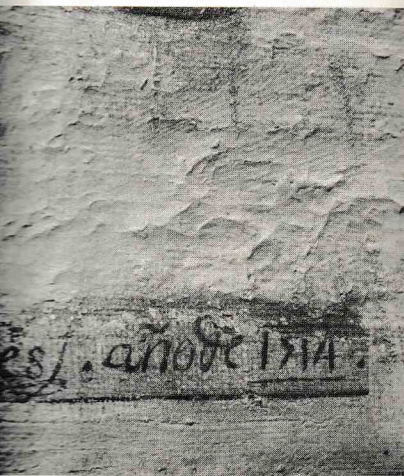 es). año de 1514.